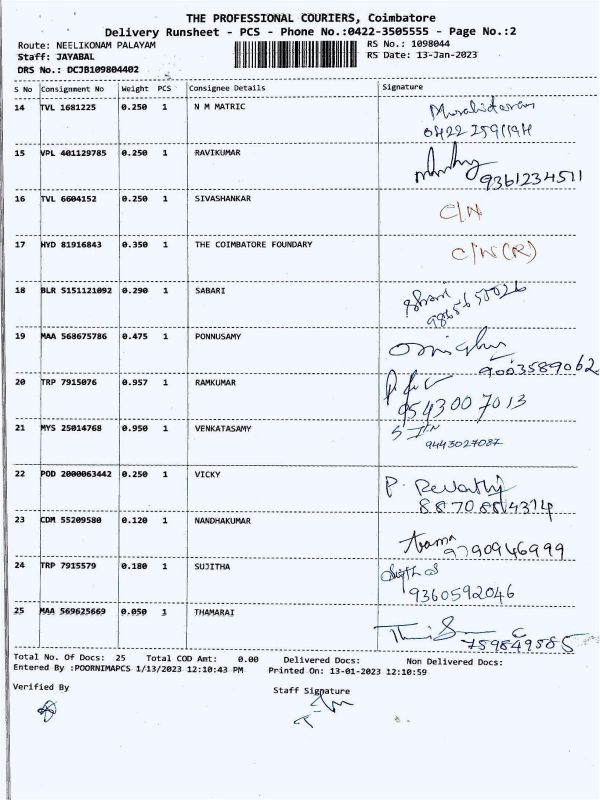 THE PROFESSIONAL COURIERS, Coimbatore
Delivery Runsheet - PCS - Phone No.:0422-3505555 - Page No.:2
Route: NEELIKONAM PALAYAM RS No.: 1098044
Staff: JAYABAL RS Date: 13-Jan-2023
DRS No.: DCJB109804402
S No Consignment No Weight PCS Consignee Details Signature
14 TVL 1681225 0.250 1 N M MATRIC
15 VPL 401129785 0.250 1 RAVIKUMAR
9361234511
16 TVL 6604152 0.250 1 SIVASHANKAR C/N
17 HYD 81916843 0.350 1 THE COIMBATORE FOUNDARY C/N(R)
18 BLR 5151121092 0.290 1 SABARI
9865655026
19 MAA 568675786 0.475 1 PONNUSAMY
9003589062
20 TRP 7915076 0.957 1 RAMKUMAR
9543007013
21 MYS 25014768 0.950 1 VENKATASAMY
9443027087
22 POD 2000063442 0.250 1 VICKY P. Revathy
23 CDM 55209580 0.120 1 NANDHAKUMAR
9790946999
24 TRP 7915579 0.180 1 SUJITHA
9360592046
25 MAA 569625669 0.050 1 THAMARAI
Total No. Of Docs: 25 Total COD Amt: 0.00 Delivered Docs: Non Delivered Docs:
Entered By :POORNIMAPCS 1/13/2023 12:10:43 PM Printed On: 13-01-2023 12:10:59
Verified By Staff Signature